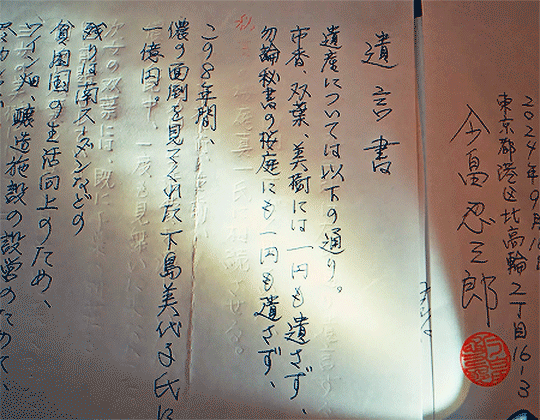 2024年9月
東京都港区北高輪2丁目16-3
忍三郎
遺言書
遺産については以下の通り。
市香、双葉、美樹には一円も遺さず、
勿論秘書の桜庭にも一円も遺さず、
この8年間、
儂の面倒を見てくれた下島美代子氏に
一億円。
残りは南スーダンなどの
貧困国の生活向上のため、
ワイン畑、醸造施設の設営のために、